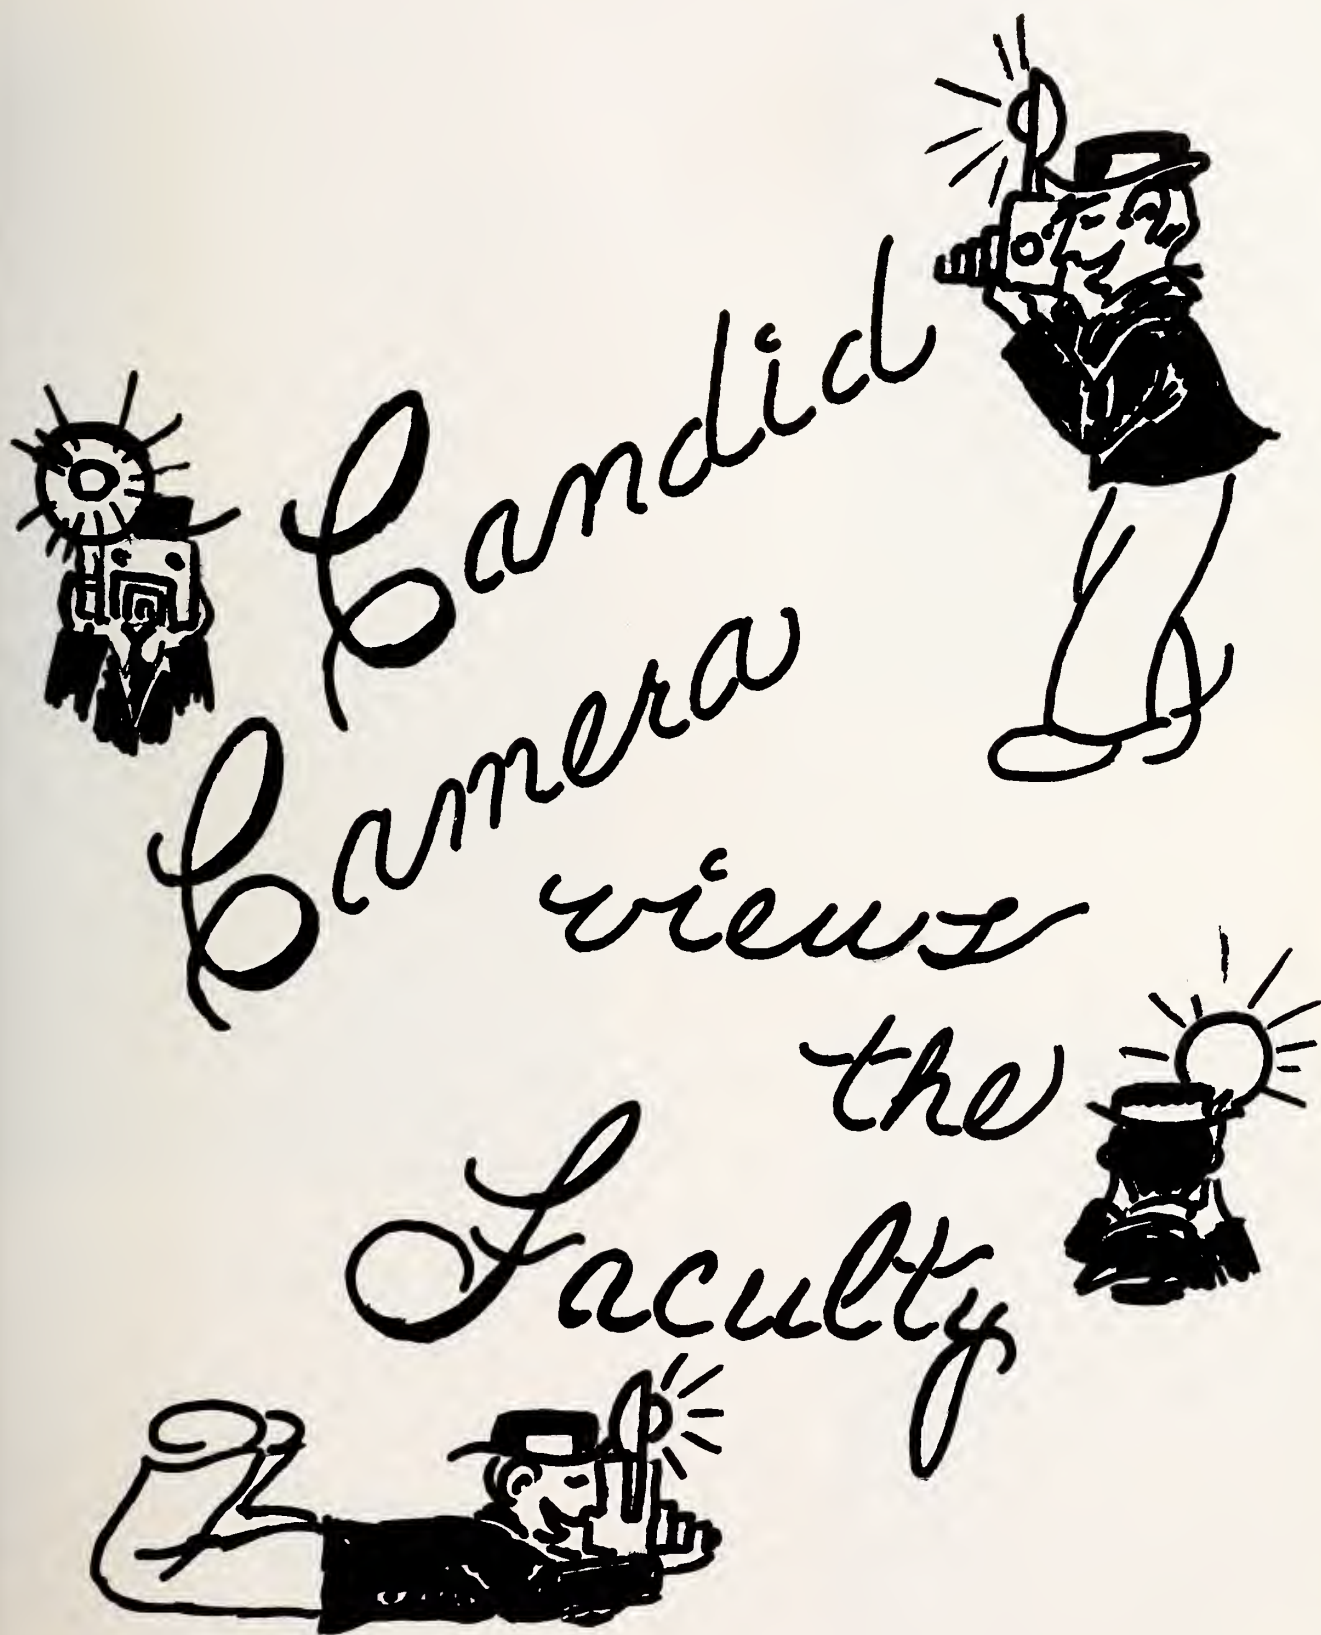 Candid
Camera
views
the
Faculty